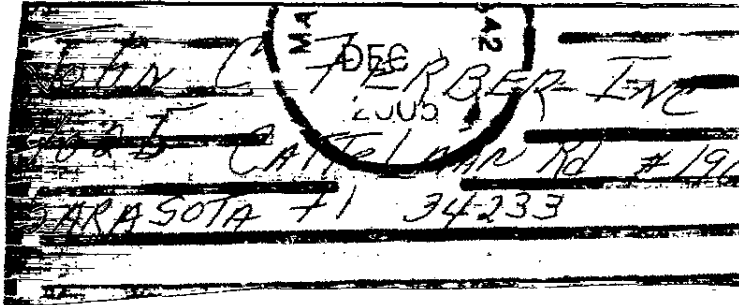 MA DEC 2005 42
John C FERBER INC
Cattelman Rd
SARASOTA Fl 34233